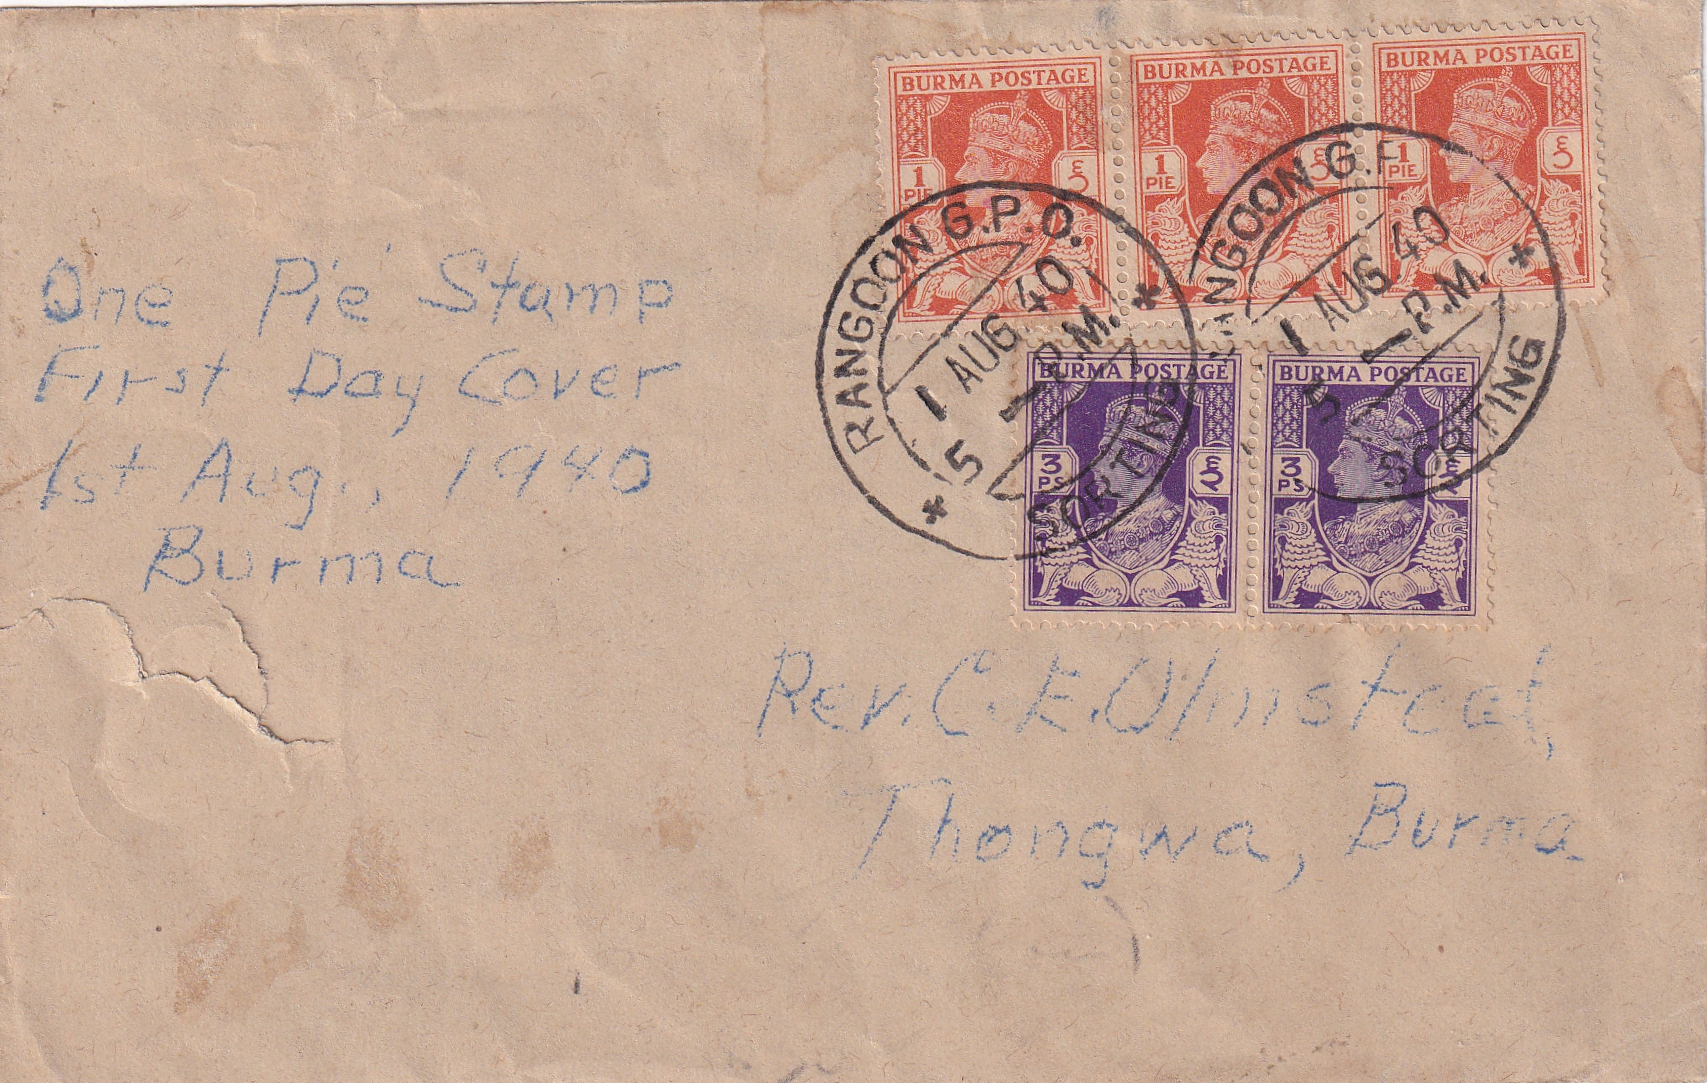 One Pie Stamp
First Day Cover
1st Aug., 1940
Burma
BURMA POSTAGE
1 PIE
BURMA POSTAGE
1 PIE
BURMA POSTAGE
1 PIE
RANGOON G.P.O.
1 AUG 40
5 - P.M.
SORTING
RANGOON G.P.
1 AUG 40
5 - P.M.
SORTING
BURMA POSTAGE
3 PS
BURMA POSTAGE
3 PS
Rev. C. E. Olmstead,
Thongwa, Burma